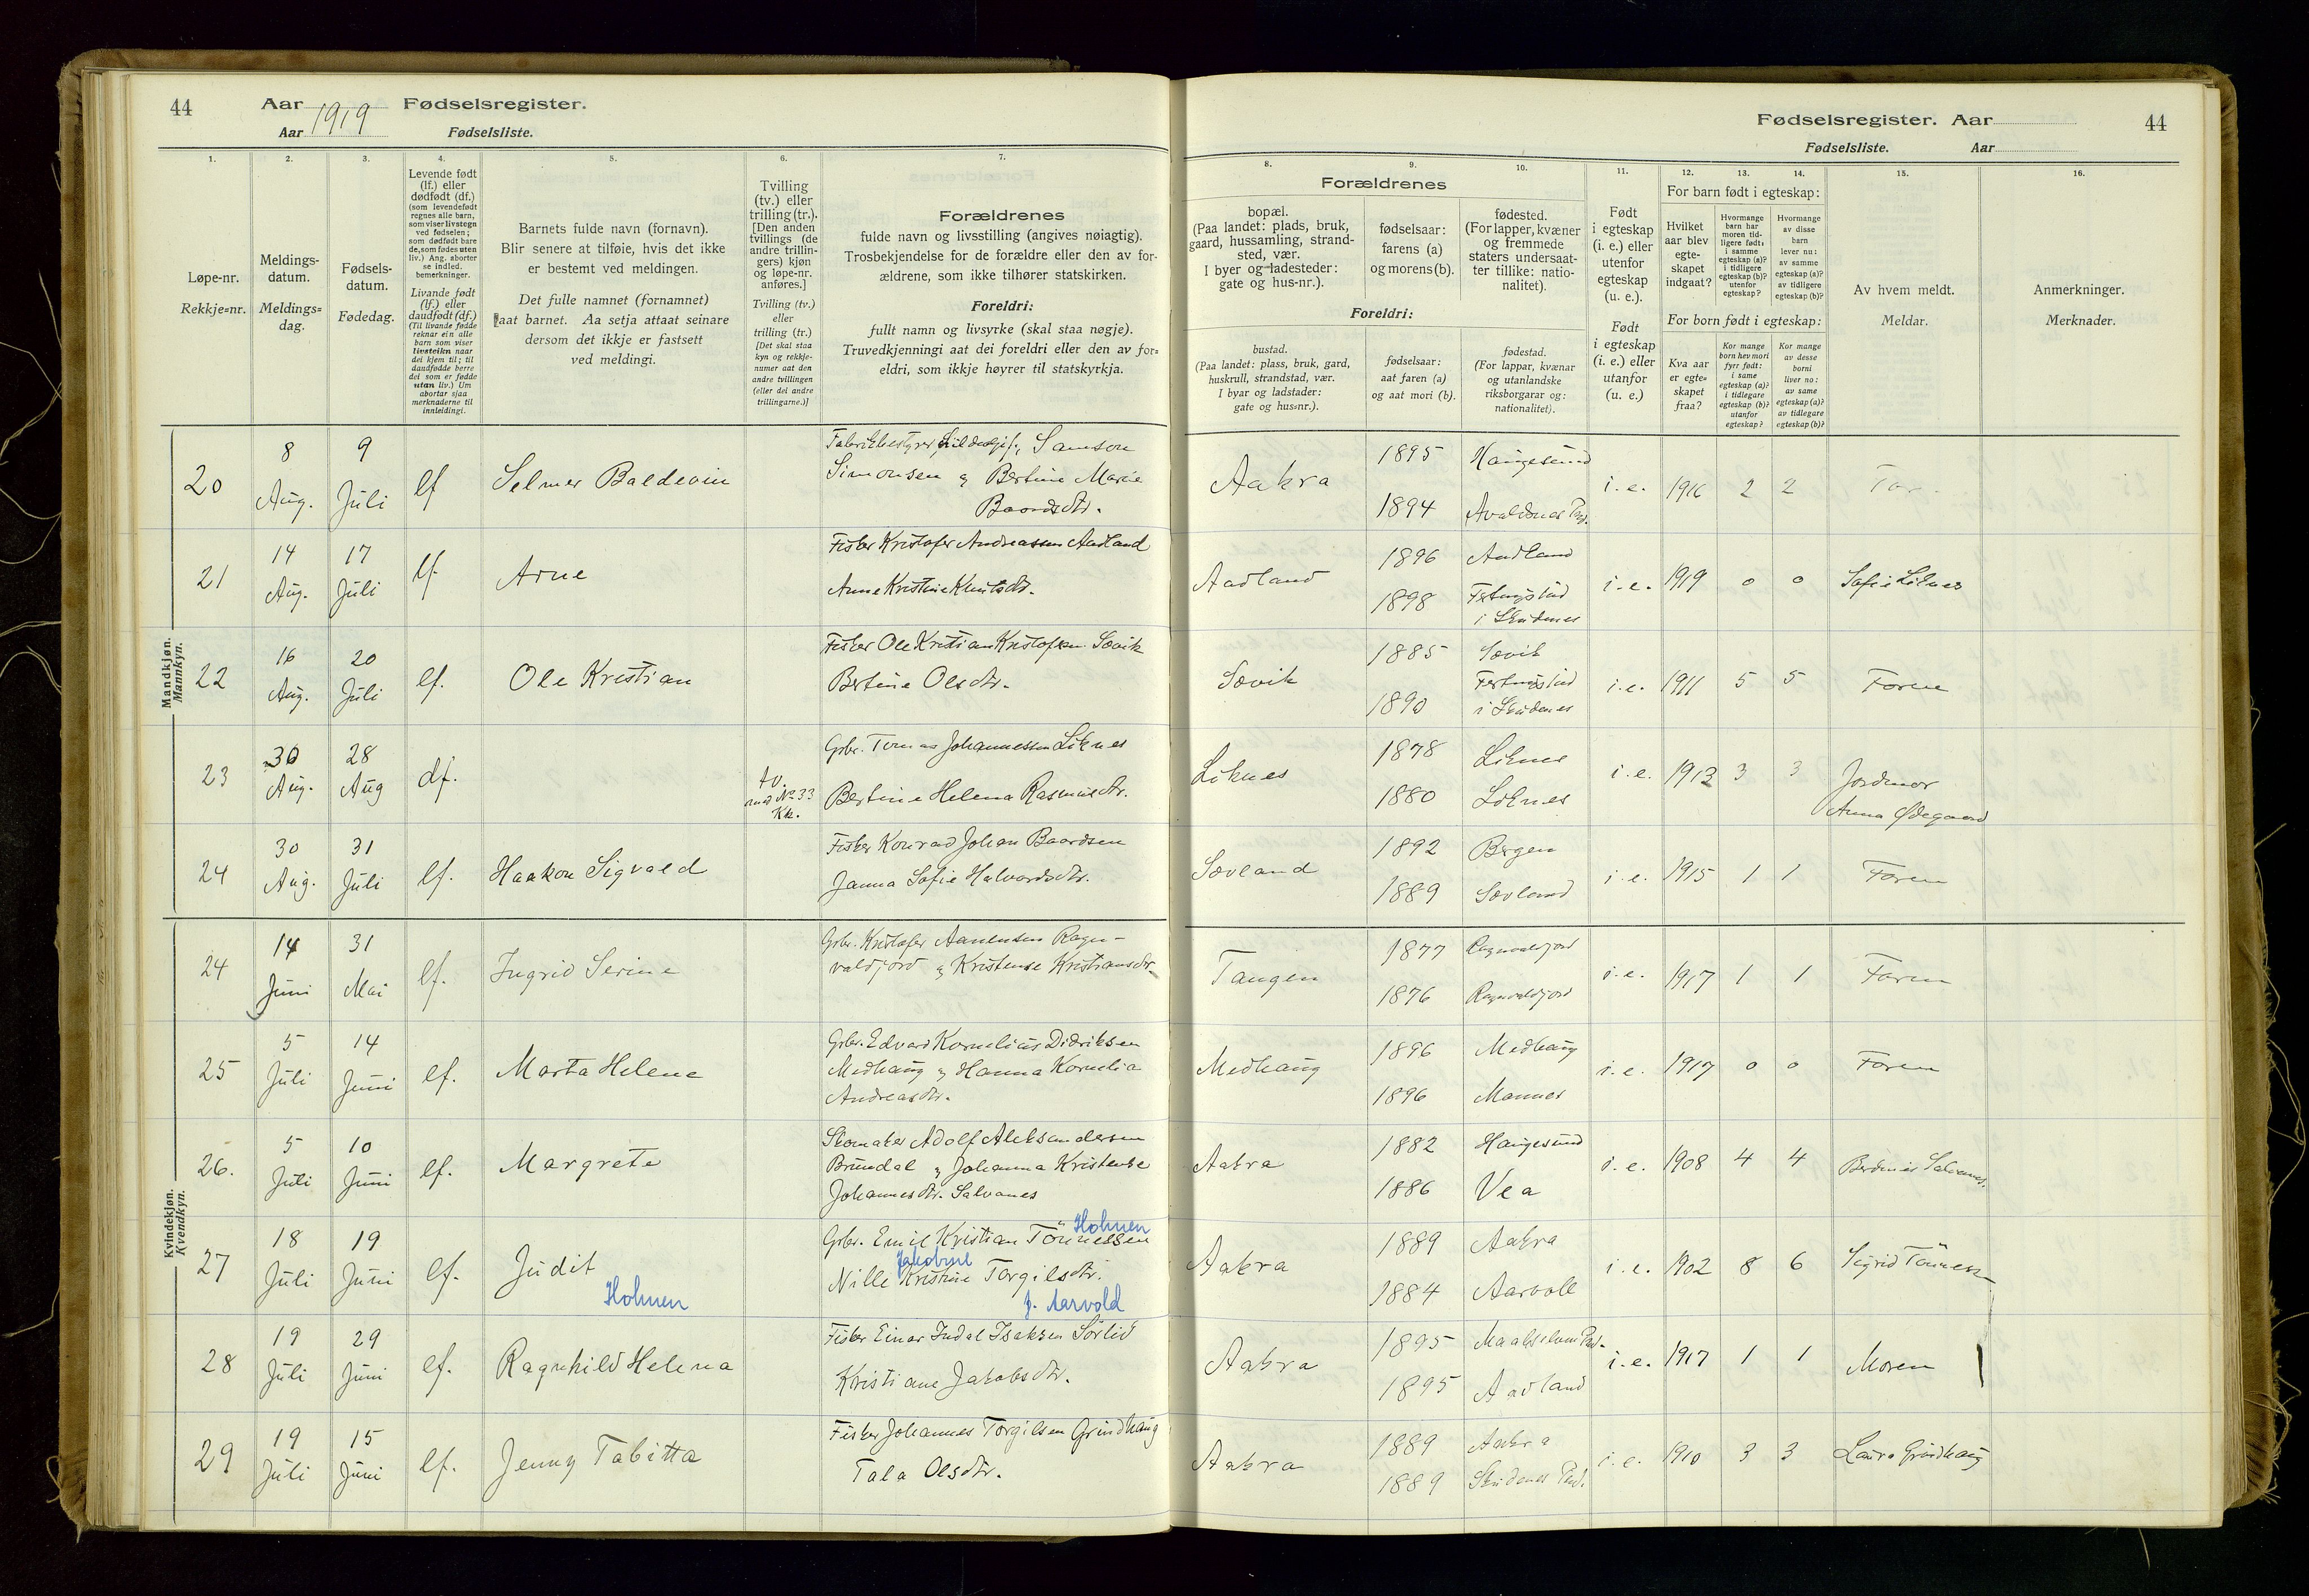 44
Aar 1919 Fødselsregister.
Aar Fødselsliste.
1.
2.
3.
4.
5.
6.
7.
Løpe-nr.
Rekkje-nr.
Meldings-
datum.
Meldings-
dag.
Fødsels-
datum.
Fødedag.
Levende født
(lf.) eller
dødfødt (df.)
(som levendefødt
regnes alle barn,
som viser livstegn
ved fødselen;
som dødfødt bare
de, som fødes uten
liv.) Ang. aborter
se indled.
bemerkninger.
Livande født
(lf.) eller
daudfødt (df.)
(Til livande fødde
reknar ein alle
barn som viser
livsteikn naar
dei kjem til; til
daudfødde berre
dei som er fødde
utan liv.) Um
abortar sjaa
merknaderne til
innleidingi.
Barnets fulde navn (fornavn).
Blir senere at tilføie, hvis det ikke
er bestemt ved meldingen.
Det fulle namnet (fornamnet)
aat barnet. Aa setja attaat seinare
dersom det ikkje er fastsett
ved meldingi.
Tvilling
(tv.) eller
trilling (tr.).
[Den anden
tvillings (de
andre trillin-
gers) kjøn
og løpe-nr.
anføres.]
Tvilling (tv.)
eller
trilling (tr.)
[Det skal staa
kyn og rekkje-
numer aat den
andre tvillingen
(eller dei andre
trillingarne.)]
Forældrenes
fulde navn og livsstilling (angives nøiagtig).
Trosbekjendelse for de forældre eller den av for-
ældrene, som ikke tilhører statskirken.
Foreldri:
fullt namn og livsyrke (skal staa nøgje).
Truvedkjenningi aat dei foreldri eller den av for-
eldri, som ikkje høyrer til statskyrkja.
Mandkjøn.
Mannkyn.
20
8
Aug.
9
Juli
lf
Selmer Baldevin
Samson
Simonsen & Bertine Marie
Baardsdtr.
21
14
Aug.
17
Juli
lf.
Arne
Fisker Kristofer Andreassen Aadland
Anne Kristine Knutsdtr.
22
16
Aug.
20
Juli
lf.
Ole Kristian
Fisker Ole Kristian Kristofsen Sævik
Bertine Olsdtr.
23
30
Aug.
28
Aug
df.
tv.
med No 33
Kk.
Grbr. Tomas Johannessen Liknes
Bertine Helena Rasmusdtr.
24
30
Aug.
31
Juli
lf.
Haakon Sigvald
Fisker Konrad Johan Baardsen
Janna Sofie Halvardsdtr.
Kvindekjøn.
Kvendkyn.
24
14
Juni
31
Mai
lf.
Ingrid Serine
Grbr. Kristofer Aanensen Ragn-
valdjord & Kristense Kristiansdtr.
25
5
Juli
14
Juni
lf.
Marta Helene
Grbr. Edvard Kornelius Didriksen
Medhaug & Hanna Kornelia
Andreasdtr.
26.
5
Juli
10
Juni
lf.
Margrete
Skomaker Adolf Aleksandersen
Brundal & Johanna Kristense
Johannesdtr. Salvanes
27
18
Juli
19
Juni
lf.
Judit
Holmen
Holmen
Grbr. Emil Kristian Tönnessen
Jakobine
Nille Kristine Torgilsdtr.
f. Aarvold
28
19
Juli
29
Juni
lf.
Ragnhild Helena
Fisker Einar Indal Isaksen Sörlid
Kristiane Jakobsdtr.
29
19
Juli
15
Juni
lf.
Jenny Tabitta
Fisker Johannes Torgilsen Grindhaug
Tala Olsdtr.
Fødselsregister. Aar
44
Fødselsliste. Aar
8.
9.
10.
11.
12.
13.
14.
15.
16.
Forældrenes
bopæl.
(Paa landet: plads, bruk,
gaard, hussamling, strand-
sted, vær.
I byer og ladesteder:
gate og hus-nr.).
fødselsaar:
farens (a)
og morens (b).
fødested.
(For lapper, kvæner
og fremmede
staters undersaat-
ter tillike: natio-
nalitet).
Foreldri:
bustad.
(Paa landet: plass, bruk, gard,
huskrull, strandstad, vær.
I byar og ladstader:
gate og hus-nr.).
fødselsaar:
aat faren (a)
og aat mori (b).
fødestad.
(For lappar, kvænar
og utanlandske
riksborgarar og:
nationalitet).
Født
i egteskap
(i. e.) eller
utenfor
egteskap
(u. e.).
Født
i egteskap
(i. e.) eller
utanfor
(u. e.)
For barn født i egteskap:
Hvilket
aar blev
egte-
skapet
indgaat?
Hvormange
barn har
moren tid-
ligere født:
i samme
egteskap (a)?
i tidligere
egteskap (b)?
utenfor
egteskap?
Hvormange
av disse
barn
lever nu:
av samme
egteskap (a)?
av tidligere
egteskap (b)?
For born født i egteskap:
Kva aar
er egte-
skapet
fraa?
Kor mange
born hev mori
fyrr født:
i same
egteskap (a)?
i tidlegare
egteskap (b)?
utanfor
egteskap?
Kor mange
av desse
borni
liver no:
av same
egteskap (a)?
av tidlegare
egteskap (b)?
Av hvem meldt.
Meldar.
Anmerkninger.
Merknader.
Aakra
1895
1894
Haugesund
Avaldsnes Pgd.
i. e.
1916
2
2
Far.
Aadland
1896
1898
Aadland
i Skudenes
i. e.
1919
0
0
Sofie Liknes
Sævik
1885
1890
Sævik
i Skudenes
i. e.
1911
5
5
Faren
Liknes
1878
1880
Liknes
Liknes
i. e.
1913
3
3
Jordmor
Anna Ødegaard
Sævland
1892
1889
Bergen
Sævland
i. e.
1915
1
1
Faren
Tangen
1877
1876
Ragnvaldjord
Ragnvaldjord
i. e.
1917
1
1
Faren
Medhaug
1896
1896
Medhaug
Mannes
i. e.
1917
0
0
Faren
Aakra
1882
1886
Haugesund
Vea
i. e.
1908
4
4
Salvanes.
Aakra
1889
1884
Aakra
Aarvoll
i. e.
1902
8
6
Sigrid Tönness
Aakra
1895
1895
Maalselven Pgd.
Aadland
i. e.
1917
1
1
Moren
Aakra
1889
1889
Aakra
Skudenes Pgd.
i. e.
1910
3
3
Laura Grindhaug